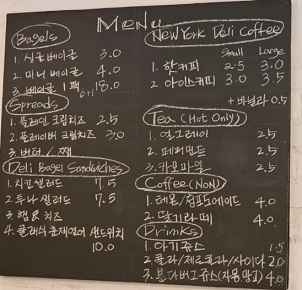 Menu
Bagels
1. 싱글 베이글 3.0
2. 미니 베이글 4.0
3. 베이글 1팩 6+1 18.0
Spreads
1. 플레인 크림치즈 2.5
2. 플레이버 크림치즈 3.0
3. 버터 / 잼
Deli Bagel Sandwiches
1. 치킨 샐러드 7.5
2. 투나 샐러드 7.5
3. 햄 & 치즈
4. 클래식 훈제연어 샌드위치
10.0
New York Deli Coffee
Small Large
1. 핫커피 2.5 3.0
2. 아이스커피 3.0 3.5
+ 바닐라 0.5
Tea (Hot Only)
1. 얼그레이 2.5
2. 페퍼민트 2.5
3. 카모마일 2.5
Coffee (Non)
1. 레몬/ 4.0
2. 딸기라떼 4.0
Drinks
1. 아기쥬스 1.5
2. 콜라/제로콜라/사이다 2.0
3. 4.0